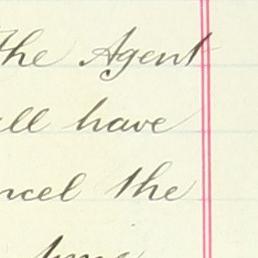 The Agent
all have
ncel the
time